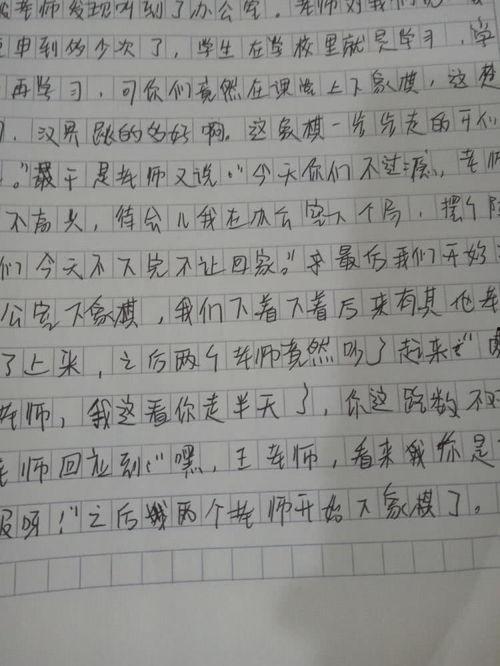 老师发现叫到了办公室。老师对我们说
重申到多少次了，学生在学校里就是学习，学
再学习，可你们竟然在课堂上下象棋，这楚
，汉界跳的多好啊。这象棋一步步走的
。”于是老师又说：“今天你们不过瘾，老师
不高兴，待会儿我在办公室下个局，摆个阵
们今天不下完不让回家。”最后我们开始
公室下象棋，我们下着下着后来有其他老
了上来，之后两个老师竟然吵了起来：“
老师，我这看你走半天了，你这路数不对
老师回应到：“嘿，王老师，看来我你是
服呀！”之后两个老师开始下象棋了。